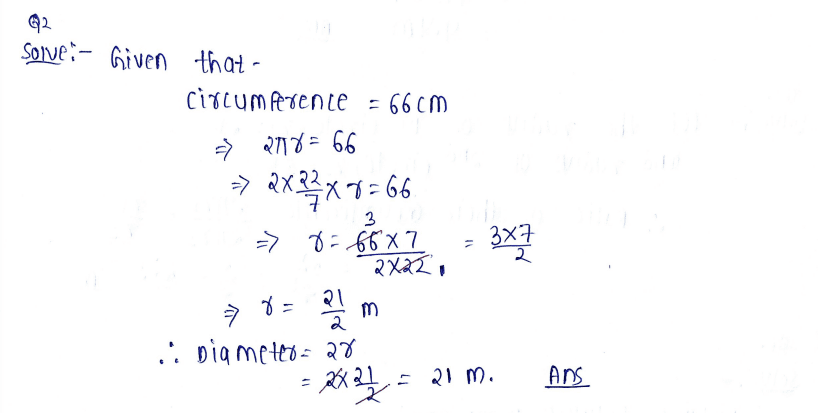 Q2
Solve:- Given that -
circumference = 66cm
⇒ 2πr = 66
⇒ 2 × 22/7 × r = 66
⇒ r = 66 × 7 / 2 × 22 3 1 = 3×7/2
⇒ r = 21/2 m
∴ Diameter = 2r
= 2 × 21/2 = 21 m. Ans